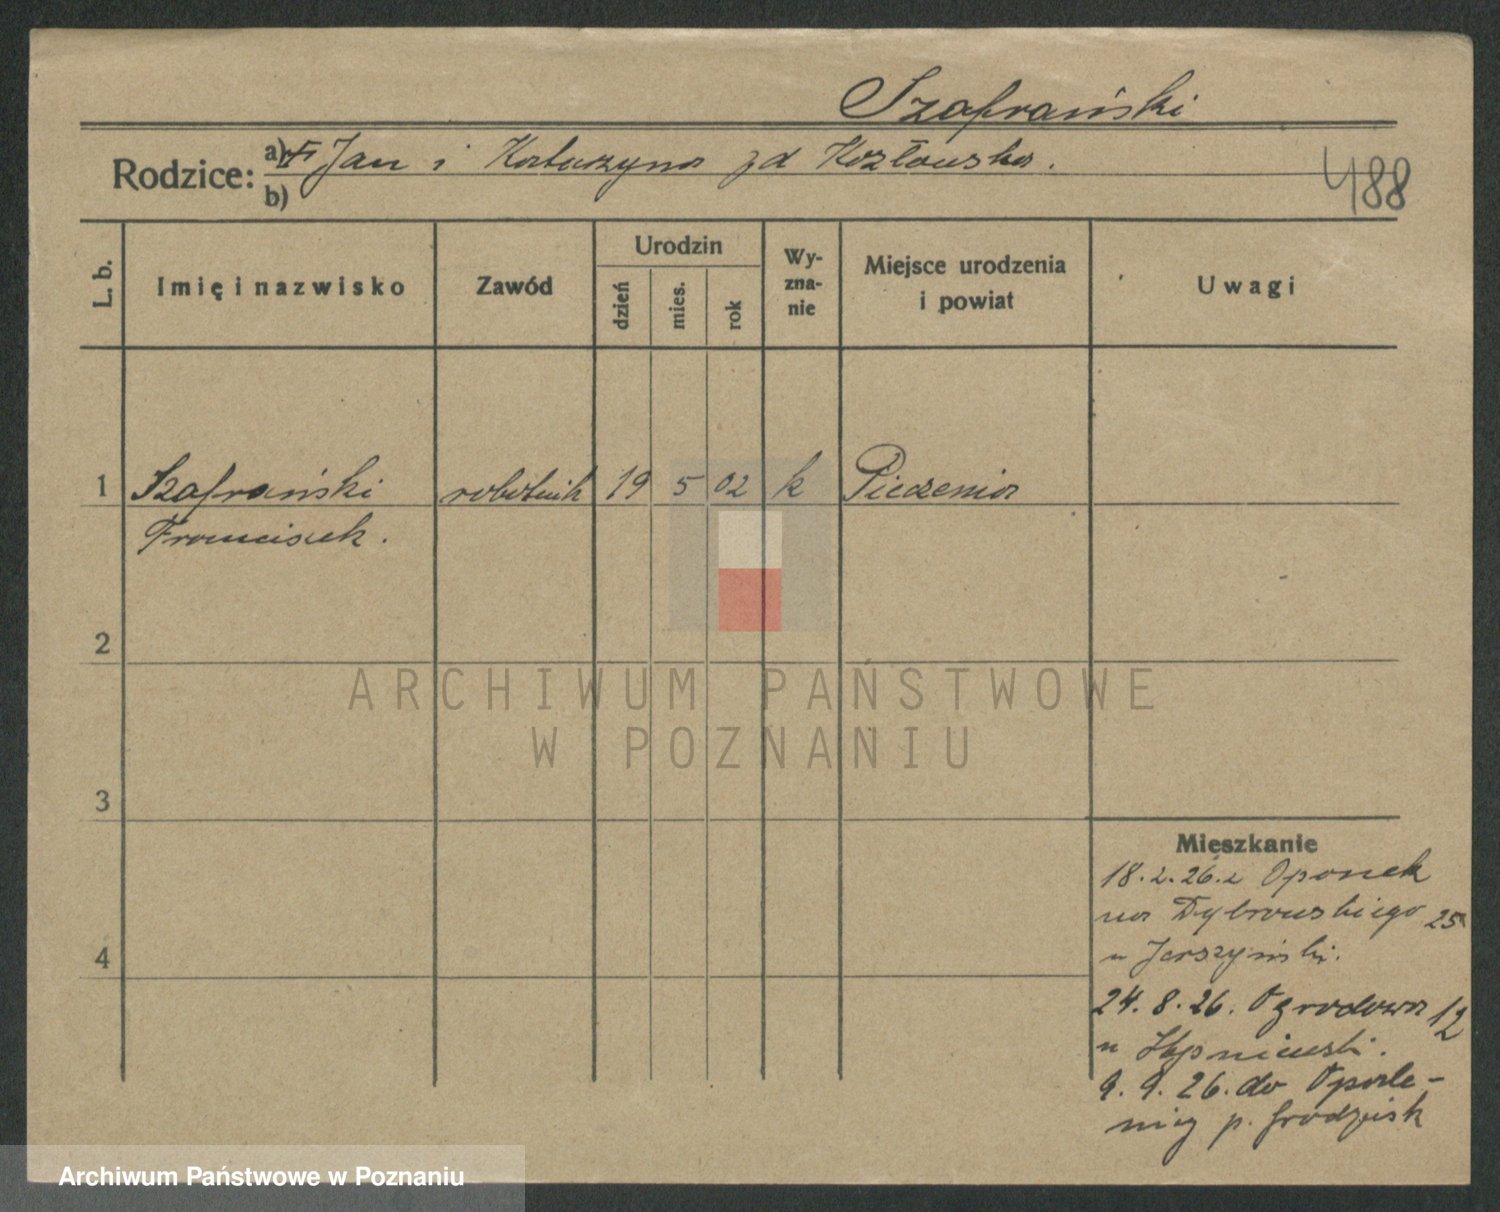 Szafrański
Rodzice: a) Jan i Katarzyna zd Kozłowska.
b)
488
L. b.
Imię i nazwisko
Zawód
Urodzin
dzień
mies.
rok
Wy-
zna-
nie
Miejsce urodzenia
i powiat
Uwagi
1 Szafrański robotnik 19 5 02 k
Franciszek.
2
3
4
Mieszkanie
18.2.26. z
na Dąbrowskiego 25
u
24.8.26. Ogrodowa 12
u
9.9.26. do Opale-
nicy p. Grodzisk
ARCHIWUM PAŃSTWOWE
W POZNANIU
Archiwum Państwowe w Poznaniu